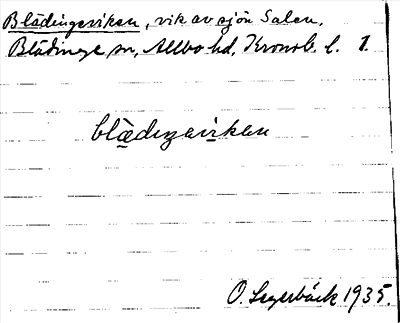 Blädingeviken, vik av sjön Salen.
Blädinge sn, Allbo hd, Kronob. l. 1.
blædiŋavikən
O. Segerbäck 1935.